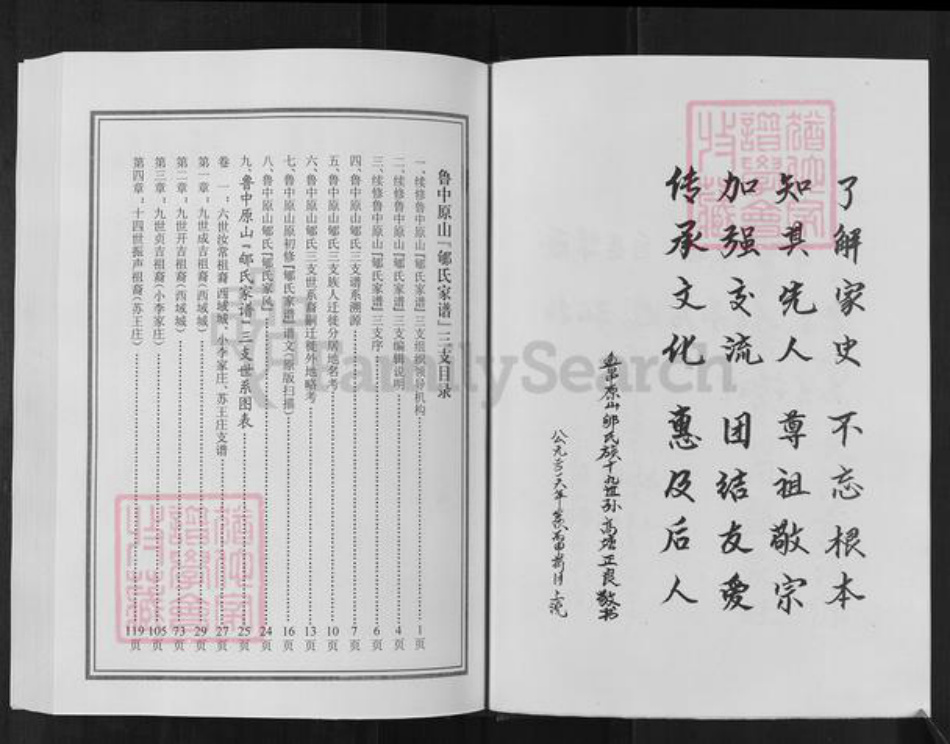 了解家史 不忘根本
知其先人 尊祖敬宗
加强交流 团结友爱
传承文化 惠及后人
原山郇氏族十九世孙 高塘正良敬书
鲁中原山『郇氏家谱』三支目录
一、续修鲁中原山『郇氏家谱』三支组织领导机构 1页
二、续修鲁中原山『郇氏家谱』三支编辑说明 4页
三、续修鲁中原山『郇氏家谱』三支序 6页
四、鲁中原山郇氏三支谱系溯源 7页
五、鲁中原山郇氏三支族人迁徙分居地名考 10页
六、鲁中原山郇氏三支世系裔嗣迁徙外地略考 13页
七、鲁中原山原初修『郇氏家谱』谱文(原版扫描) 16页
八、鲁中原山郇氏『郇氏家风』 24页
九、鲁中原山『郇氏家谱』三支世系图表 25页
卷 一:六世汝常祖裔 西域城、小李家庄、苏王庄支谱 27页
第一章:九世成吉祖裔(西域城) 29页
第二章:九世开吉祖裔(西域城) 73页
第三章:九世贞吉祖裔(小李家庄) 105页
第四章:十四世振声祖裔(苏王庄) 119页
FamilySearch